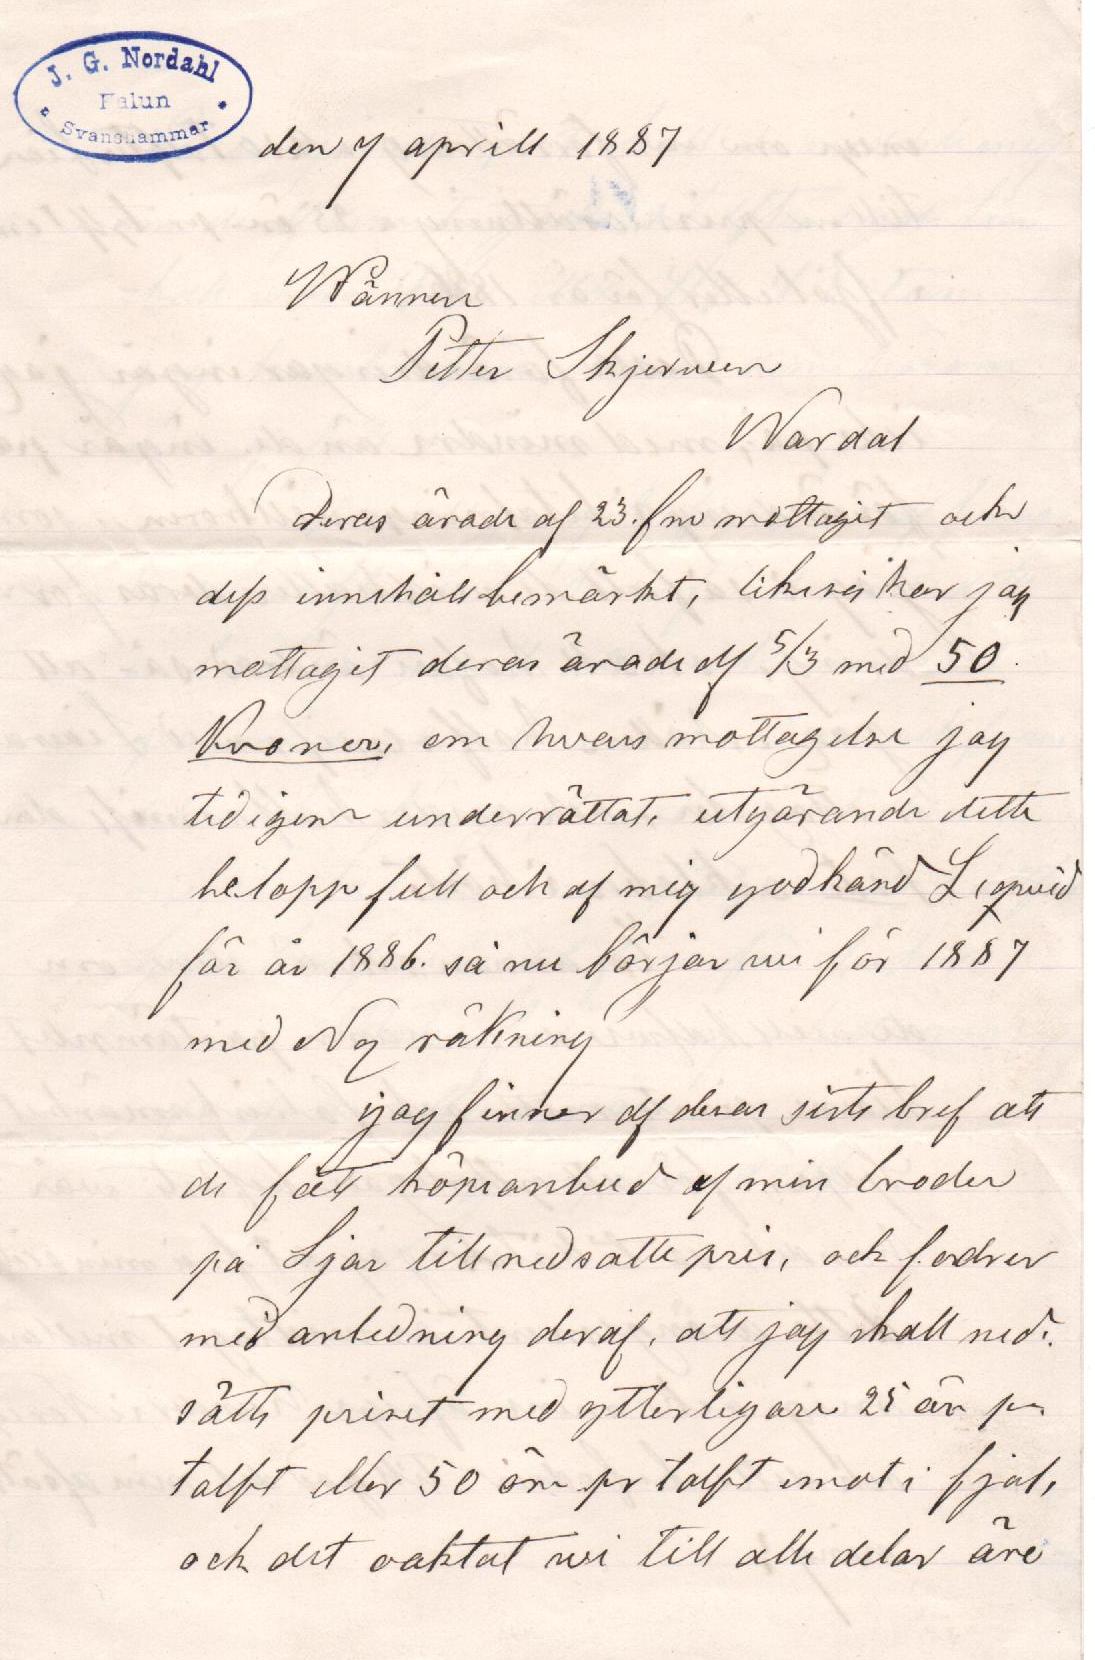 J. G. Nordahl
Falun
Svanshammar
den 7 aprill 1887
Wännen
Petter Skjerween
Wardal
Deras ärade af 23. fm mottagit och
dess innehåll bemärkt, likeså har jag
mottagit deras ärade af 5/3 med 50
Kroner, om hvars mottagelse jag
tidigere underrättat, utgörande dette
belopp full och af mig godkänd Liqvid
för år 1886. så nu börjar wi för 1887
med Ny räkning
jag finner af deras sista bref att
de fått köpeanbud af min broder
på Ljar till nedsatte pris, och fordrer
med anledning deraf, att jag skall ned-
sätte priset med ytterligare 25 ör pr
tolft eller 50 öre pr tolft emot i fjol,
och det oaktat wi till alle delar äre